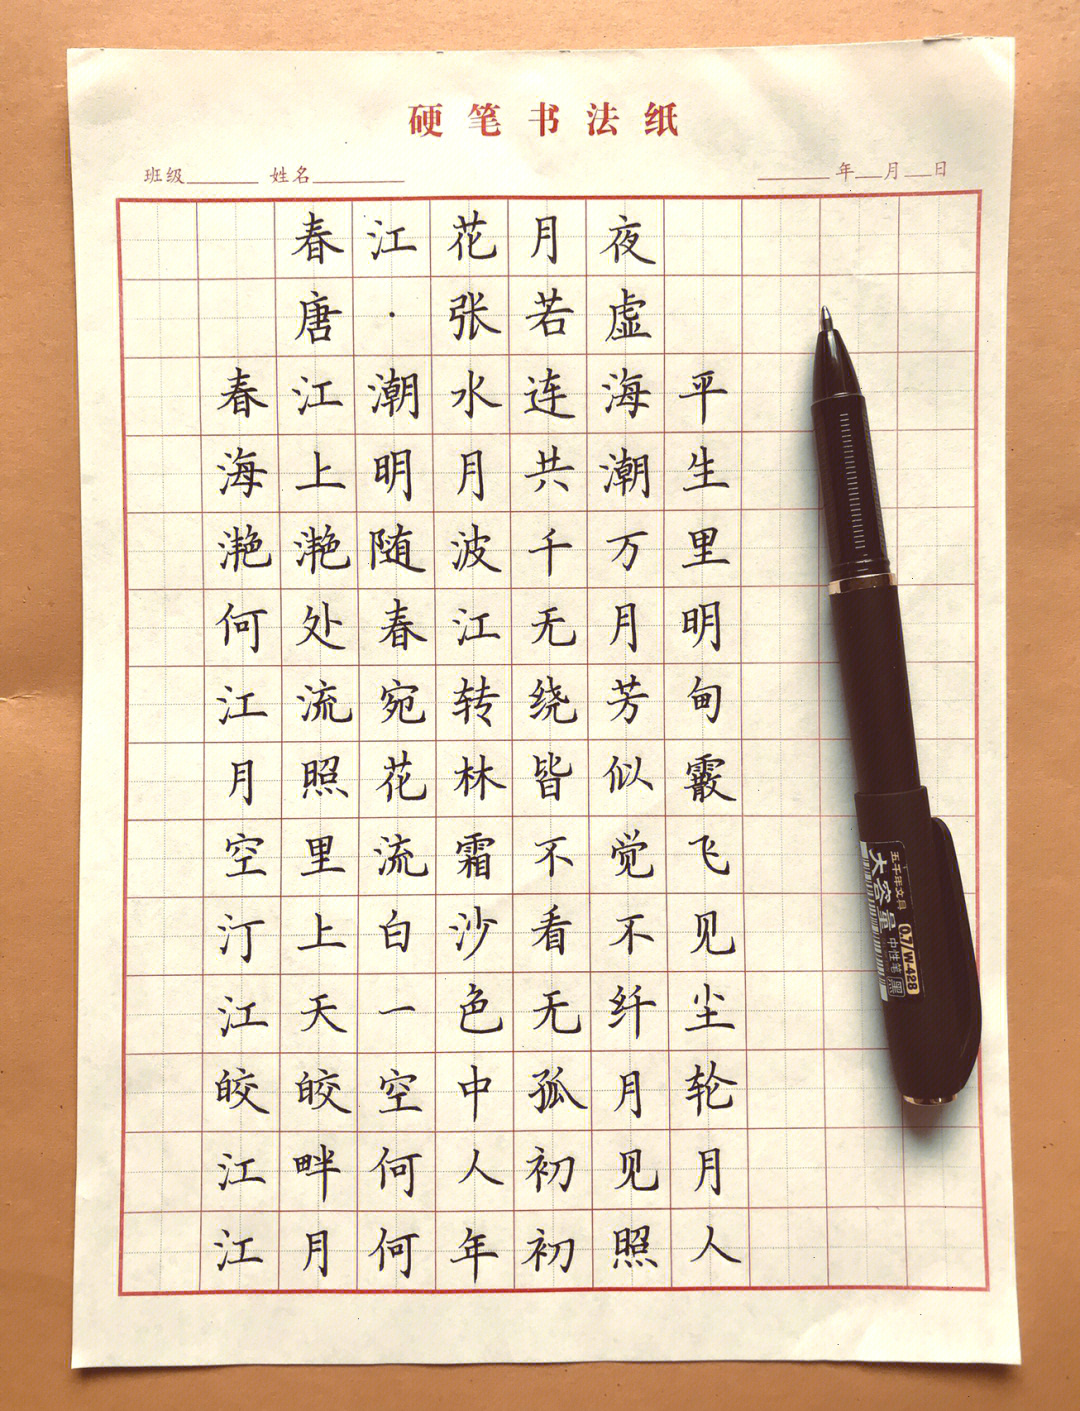 硬笔书法纸
班级 姓名 年 月 日
春江花月夜
唐·张若虚
春江潮水连海平
海上明月共潮生
滟滟随波千万里
何处春江无月明
江流宛转绕芳甸
月照花林皆似霰
空里流霜不觉飞
汀上白沙看不见
江天一色无纤尘
皎皎空中孤月轮
江畔何人初见月
江月何年初照人
五千年文具
大容量 0.7/W-428
中性笔 黑